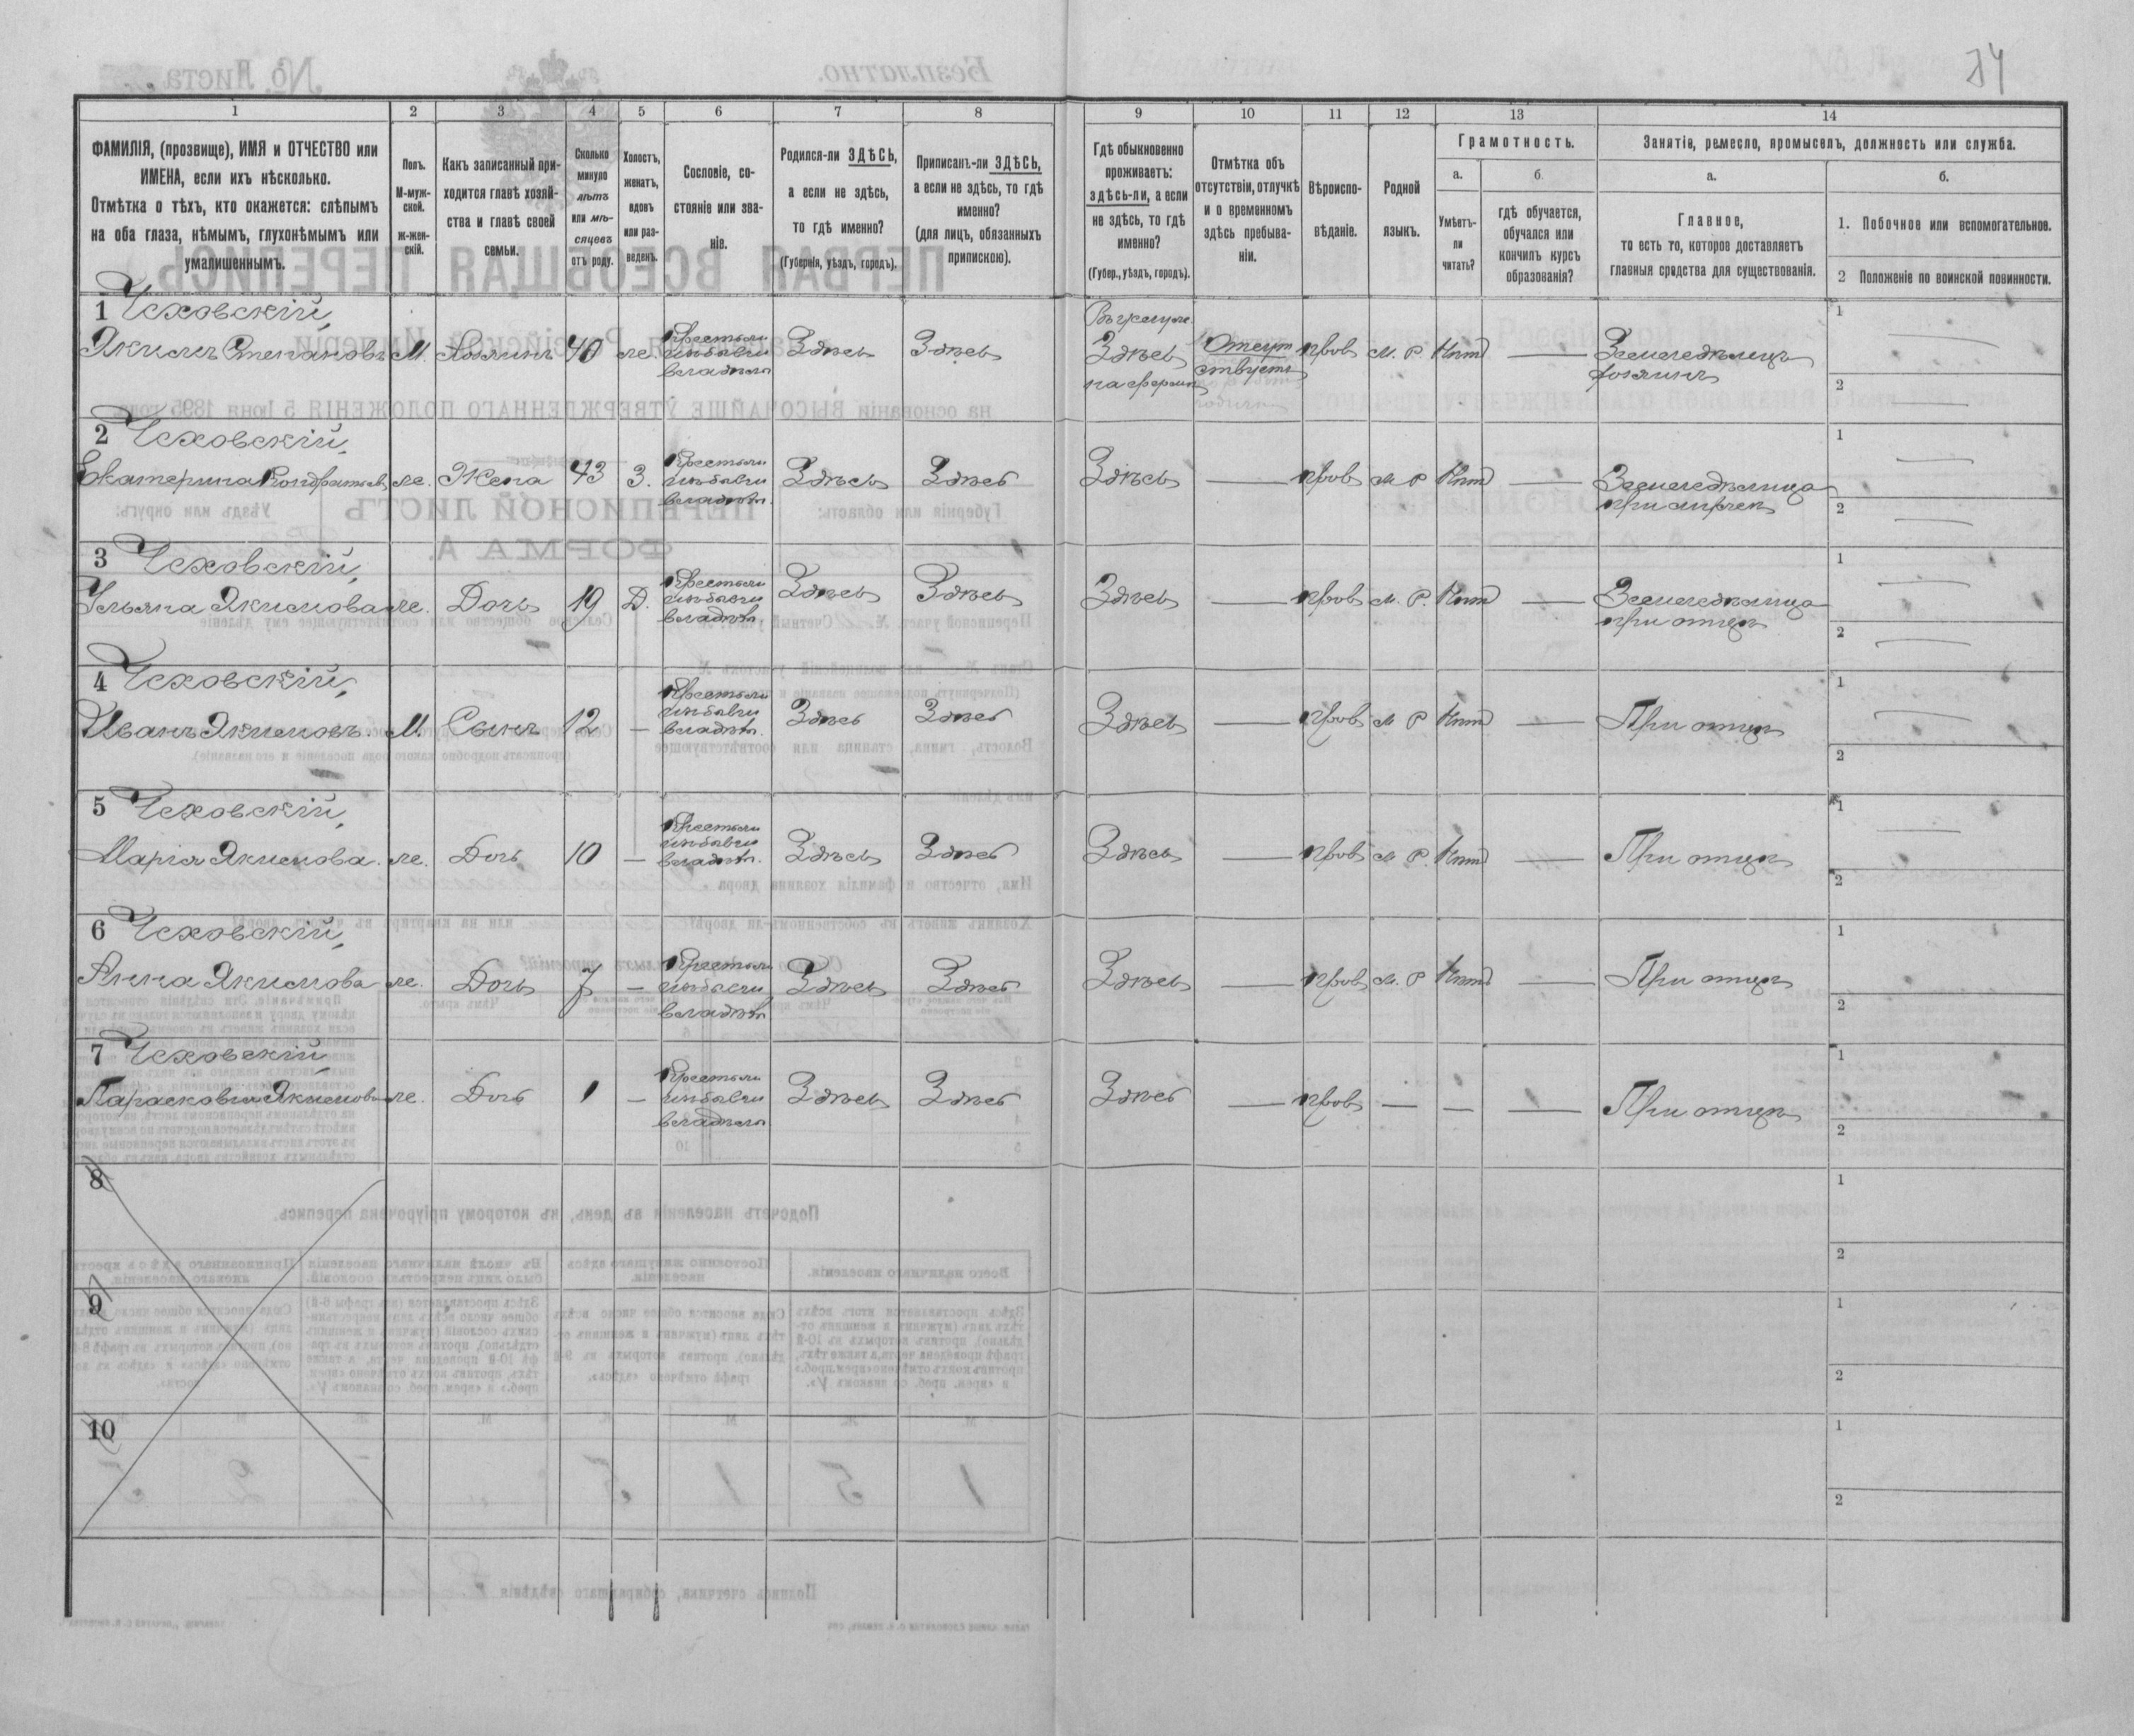 74
1 2 3 4 5 6 7 8 9 10 11 12 13 14
ФАМИЛІЯ, (прозвище), ИМЯ и ОТЧЕСТВО или
ИМЕНА, если ихъ нѣсколько.
Отмѣтка о тѣхъ, кто окажется: слѣпымъ
на оба глаза, нѣмымъ, глухонѣмымъ или
умалишеннымъ.
Полъ.
М-муж-
ской.
ж-жен-
скій.
Какъ записанный при-
ходится главѣ хозяй-
ства и главѣ своей
семьи.
Сколько
минуло
лѣтъ
или мѣ-
сяцевъ
отъ роду.
Холостъ,
женатъ,
вдовъ
или раз-
веденъ.
Сословіе, со-
стояніе или зва-
ніе.
Родился-ли ЗДѢСЬ,
а если не здѣсь,
то гдѣ именно?
(Губернія, уѣздъ, городъ).
Приписанъ-ли ЗДѢСЬ,
а если не здѣсь, то гдѣ
именно?
(для лицъ, обязанныхъ
припискою).
Гдѣ обыкновенно
проживаетъ:
здѣсь-ли, а если
не здѣсь, то гдѣ
именно?
(Губер., уѣздъ, городъ).
Отмѣтка объ
отсутствіи, отлучкѣ
и о временномъ
здѣсь пребыва-
ніи.
Вѣроиспо-
вѣданіе.
Родной
языкъ.
Грамотность.
а.
Умѣетъ-
ли
читать?
б.
гдѣ обучается,
обучался или
кончилъ курсъ
образованія?
Занятіе, ремесло, промыселъ, должность или служба.
а.
Главное,
то есть то, которое доставляетъ
главныя средства для существованія.
б.
1. Побочное или вспомогательное.
2 Положеніе по воинской повинности.
1 Чеховскій,
Якимъ Степановъ М. Хозяинъ 40 ж. Крестьян. изъ бывш. владѣл. Здѣсь Здѣсь Здѣсь на фермѣ Отсутствуетъ прав М. Р. Нѣтъ — Земледѣлецъ хозяинъ 1 — 2 —
2 Чеховскій,
Екатерина Кондратьев. ж. Жена 43 З. Крестьян. изъ бывш. владѣл. Здѣсь Здѣсь Здѣсь — прав М Р Нѣтъ — Земледѣлица при мужѣ 1 — 2 —
3 Чеховскій,
Ульяна Якимова ж. Дочь 19 Д. Крестьян. изъ бывш. владѣл. Здѣсь Здѣсь Здѣсь — прав М. Р. Нѣтъ — Земледѣлица при отцѣ 1 — 2 —
4 Чеховскій,
Иванъ Якимовъ. М. Сынъ 12 — Крестьян. изъ бывш. владѣл. Здѣсь Здѣсь Здѣсь — прав М Р Нѣтъ — При отцѣ 1 — 2
5 Чеховскій,
Марія Якимова. ж. Дочь 10 — Крестьян. изъ бывш. владѣл. Здѣсь Здѣсь Здѣсь — прав М Р. Нѣтъ — При отцѣ 1 — 2
6 Чеховскій,
Анна Якимова ж. Дочь 7 — Крестьян. изъ бывш. владѣл. Здѣсь Здѣсь Здѣсь — прав М. Р Нѣтъ — При отцѣ 1 2
7 Чеховскій
Парасковія Якимова ж. Дочь 1 — Крестьян. изъ бывш. владѣл. Здѣсь Здѣсь Здѣсь — прав — — — При отцѣ 1 2
8 1 2
9 1 2
10 1 2